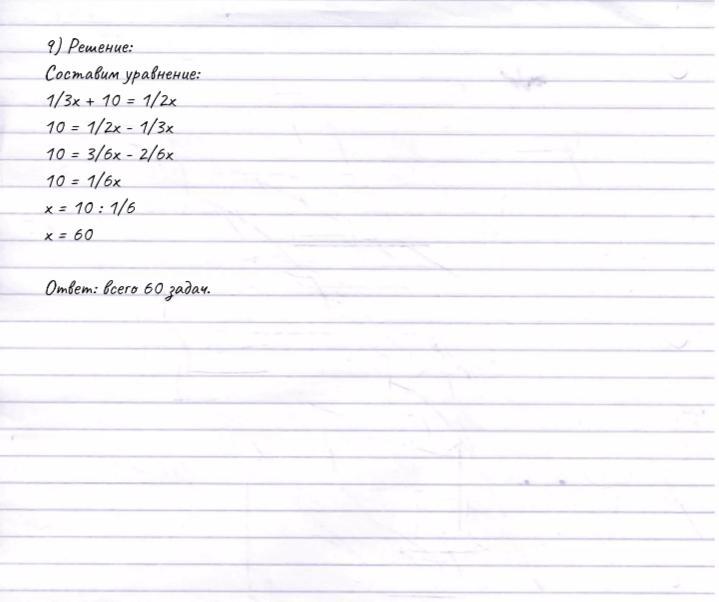 9) Решение:
Составим уравнение:
1/3x + 10 = 1/2x
10 = 1/2x - 1/3x
10 = 3/6x - 2/6x
10 = 1/6x
x = 10 : 1/6
x = 60
Ответ: всего 60 задач.